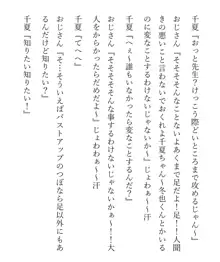 千夏『おっと先生？けっこう際どいところまで攻めるじゃん～』
おじさん『そそそそんなことないよあくまで足だよ！足！！人聞
きの悪いこと言わないでおくれよ千夏ちゃん～冬也くんとかいる
のに変なことするわけないじゃないか～』じょわぁ～～汗
千夏『へぇ～誰もいなかったら変なことするんだ？』
おじさん『そそそそんな事するわけないじゃないかぁ～！！！大
人をからかったらだめだよ～』じょわわぁ～～汗
千夏『てへへ』
おじさん『そ…そういえばバストアップのつぼなら足以外にもあ
るんだけど知りたい？』
千夏『知りたい知りたい！』